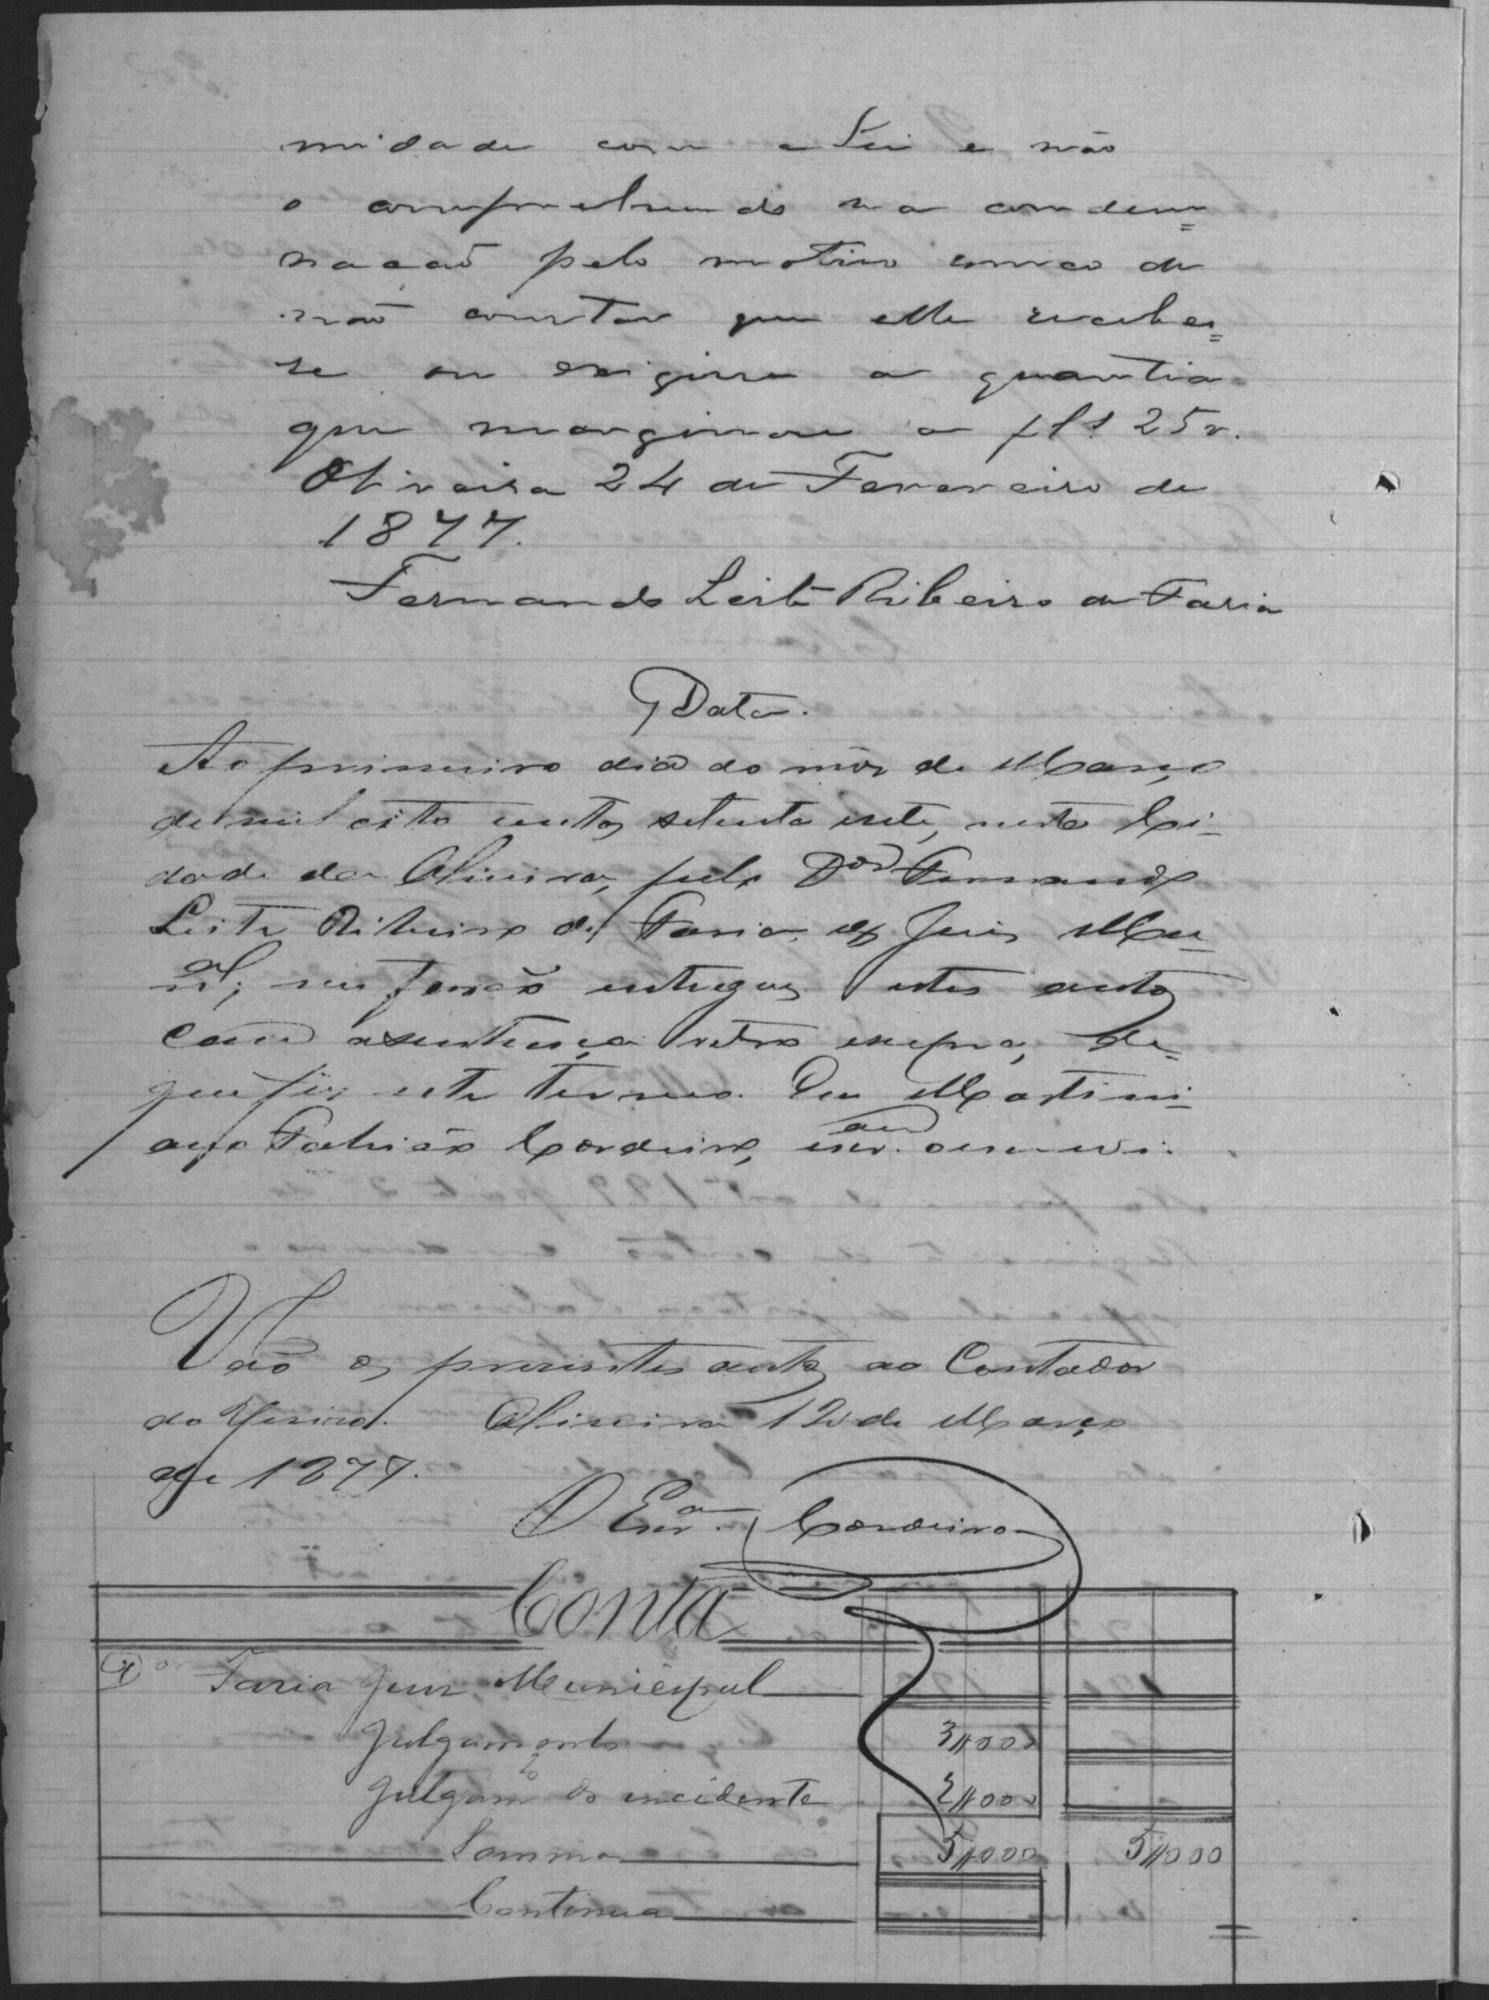 midade com a Lei e não
o comprehendo na condem=
nação pelo motivo unico de
não constar que elle recebes=
se ou exigisse a quantia
que marginou a fls 25 v.
Oliveira 24 de Fevereiro de
1877.
Fernando Leite Ribeiro de Faria
Data.
Ao primeiro dia do mez de Março
de mil oito centos setenta sete, nesta Ci-
dade da Oliveira, pelo Dor Fernando
Leite Ribeiro de Faria, Juis Mu-
nal, me forão entregues estes autos
com a sentença retro e supra, de
que fiz este termo. Eu Martini-
ano Fabião Cordeiro, escram o escrevi.
Vão os presentes autos ao Contador
do Juizo. Oliveira 12 de Março
de 1877.
O Escram Cordeiro
Conta
Dor Faria Juiz Municipal
Julgamento 3$000
Julgamto do incidente 2$000
Somma 5$000 5$000
Continua